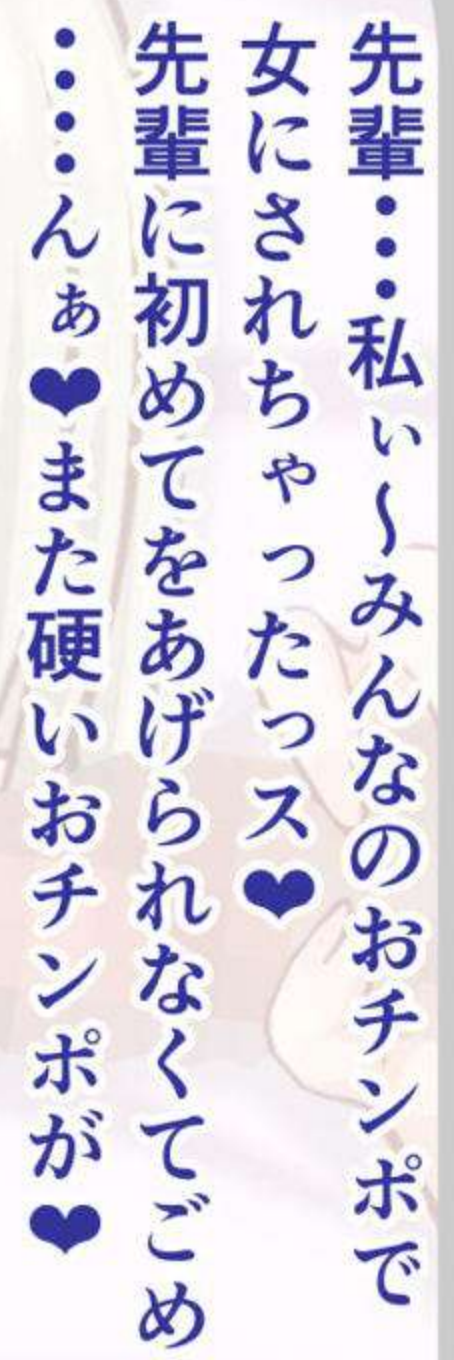 先輩…私ぃ～みんなのおチンポで
女にされちゃったっス❤
先輩に初めてをあげられなくてごめ
‥‥んぁ❤また硬いおチンポが❤